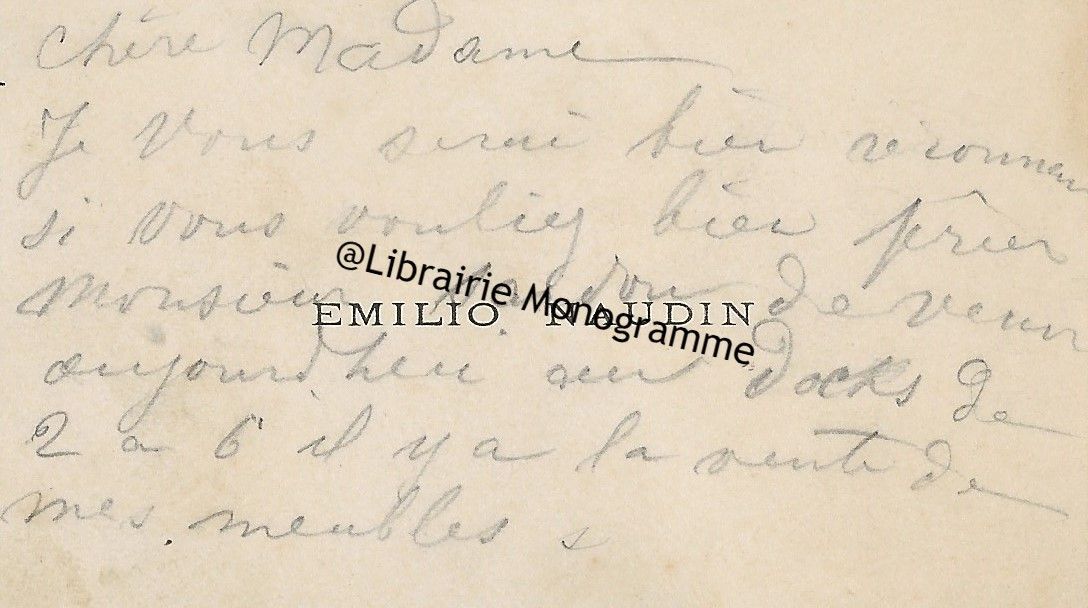 chère Madame
Je vous serai bien réconnais
si vous vouliez bien prier
Monsieur de venir
@Librairie Monogramme
EMILIO NAUDIN
aujourdheu aux Docks de
2 a 6 il y a la vente de
mes meubles